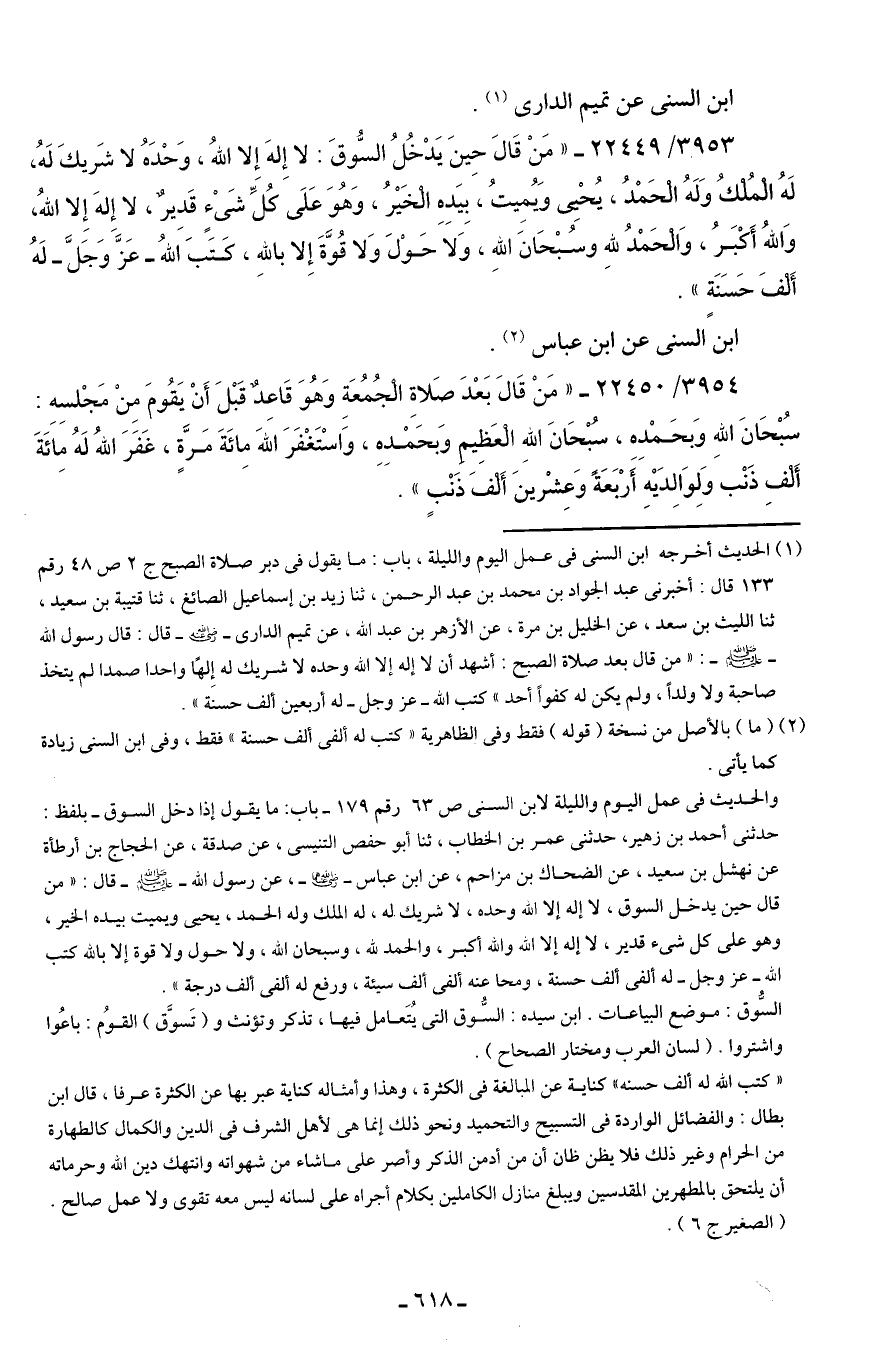 ابن السنى عن تميم الدارى (١) .
٣٩٥٣/ ٢٢٤٤٩ ـ « مَنْ قَالَ حِينَ يَدْخُلُ السُّوقَ : لا إِلهَ إِلا اللهُ ، وَحْدَهُ لا شَرِيكَ لَهُ،
لَهُ الْمُلْكُ وَلَهُ الْحَمْدُ ، يُحْيِى وَيُمِيتُ ، بِيَدِهِ الْخَيْرُ ، وَهُوَ عَلَى كُلِّ شَىْءٍ قَدِيرٌ ، لا إِلهَ إِلا اللهُ،
وَاللهُ أَكْبَـرُ ، وَالْحَمْدُ للهِ وسُـبْحَانَ اللهِ ، وَلا حَـوْلَ وَلا قُوَّةَ إِلا باللهِ ، كَـتَبَ اللهُ ـ عَزَّ وَجَلَّ ـ لَهُ
أَلْفَ حَسَنَةٍ » .
ابن السنى عن ابن عباس (٢) .
٣٩٥٤/ ٢٢٤٥٠ ـ « مَنْ قَالَ بَعْدَ صَلاةِ الْجُمُعَةِ وَهُوَ قَاعِدٌ قَبْلَ أَنْ يَقُومَ مِنْ مَجْلِسِهِ :
سُبْحَانَ اللهِ وَبِحَـمْدِهِ ، سُبْحَانَ اللهِ الْعَظِيمِ وَبِحَمْـدِهِ ، وَاسْتَغْفَرَ اللهَ مِائَةَ مَـرَّةٍ ، غَفَرَ اللهُ لَهُ مِائَةَ
أَلْفِ ذَنْبٍ وَلِوَالِدَيْهِ أَرْبَعَةً وَعِشْرِينَ أَلْفَ ذَنْبٍ » .
(١) الحديث أخـرجه ابن السنى فى عـمل اليوم والليلة ، باب : مـا يقول فى دبر صـلاة الصبح ج ٢ ص ٤٨ رقم
١٣٣ قال : أخبرنى عبد الجواد بن محمد بن عبد الرحـمن ، ثنا زيد بن إسماعيل الصائغ ، ثنا قتيبة بن سعيد ،
ثنا الليث بن سعد ، عن الخليل بن مرة ، عن الأزهر بن عبد الله ، عن تميم الدارى ـ رضي الله عنه ـ قال : قال رسول الله
ـ ﷺ ـ : « من قال بعد صلاة الصبح : أشهد أن لا إله إلا الله وحده لا شـريك له إِلهًا واحدا صمدا لم يتخذ
صاحبة ولا ولداً ، ولم يكن له كفواً أحد » كتب الله ـ عز وجل ـ له أربعين ألف حسنة » .
(٢) ( ما ) بالأصل من نسخة ( قوله ) فقط وفى الظاهرية « كتب له ألفى ألف حسنة » فقط ، وفى ابن السنى زيادة
كما يأتى .
والحـديث فى عمل اليوم والليلة لابن السـنى ص ٦٣ رقم ١٧٩ ـ باب: ما يقـول إذا دخل السـوق ـ بلفظ :
حدثنى أحمد بن زهير، حدثنى عمـر بن الخطاب ، ثنا أبو حفص التنيسى ، عن صدقة ، عن الحجاج بن أرطأة
عن نهشل بن سعيد ، عن الضحـاك بن مزاحم ، عن ابن عباس ـ رضي الله عنهما ـ، عن رسول الله ـ ﷺ ـ قال : « من
قال حين يدخـل السوق ، لا إله إلا الله وحده ، لا شريك له ، له الملك وله الحـمد ، يحيى ويميت بيـده الخير ،
وهو على كل شىء قدير ، لا إله إلا الله والله أكبـر ، والحمد لله ، وسبحان الله ، ولا حـول ولا قوة إلا بالله كتب
الله ـ عز وجل ـ له ألفى ألف حسنة ، ومحا عنه ألفى ألف سيئة ، ورفع له ألفى ألف درجة » .
السُّوق : مـوضع البياعـات . ابن سيده : السُّـوق التى يُتَعامـل فيهـا ، تذكر وتؤنث و ( تَسوَّق ) القـومُ : باعُوا
واشتروا . ( لسان العرب ومختار الصحاح ) .
« كتب الله له ألف حسنه» كنايـة عن المبالغة فى الكثرة ، وهذا وأمثـاله كناية عبر بها عن الكثرة عـرفا ، قال ابن
بطال : والفضائل الواردة فى التسبيح والتحميد ونحو ذلك إنما هى لأهل الشرف فى الدين والكمال كالطهارة
من الحرام وغير ذلك فلا يظن ظان أن من أدمن الذكر وأصر على مـاشاء من شهواته وانتهك دين الله وحرماته
أن يلتحق بالمطهرين المقدسين ويبلغ منازل الكاملين بكلام أجراه على لسانه ليس معه تقوى ولا عمل صالح .
( الصغير ج ٦ ) .
ـ ٦١٨ ـ